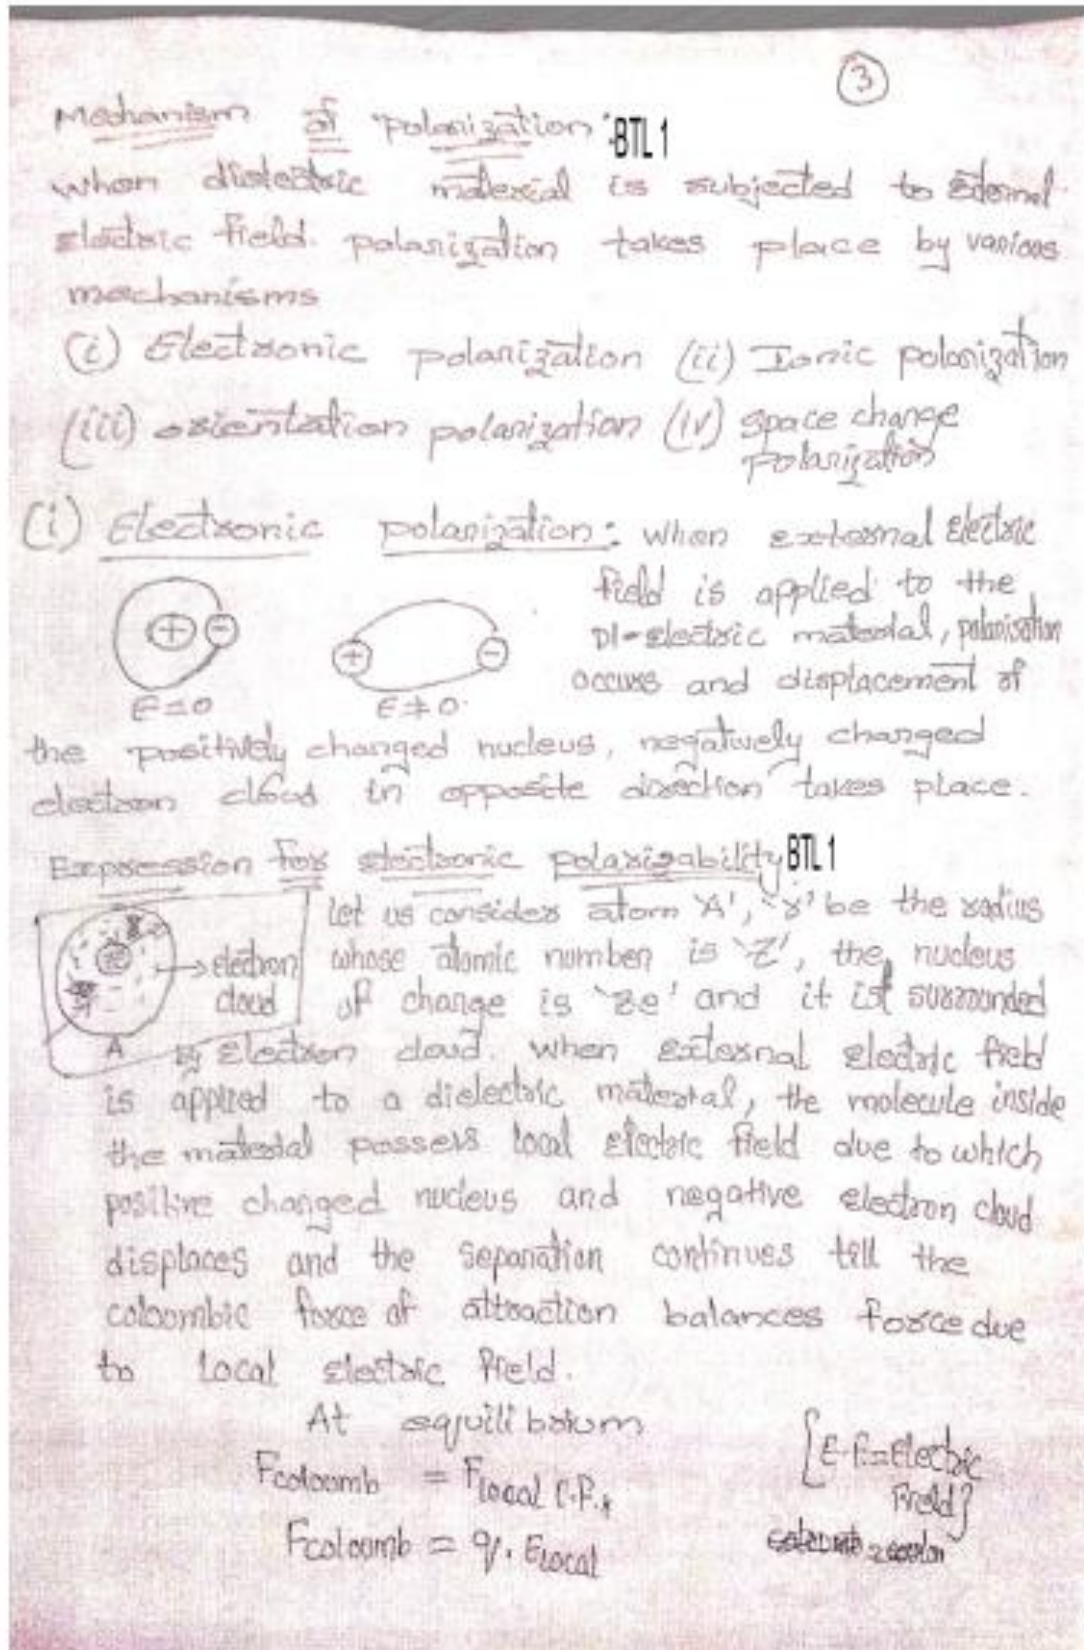 3
Mechanism of "polarization"-BTL 1
when dielectric material is subjected to External
Electric field. polarization takes place by various
mechanisms
(i) Electronic polarization (ii) Ionic polarization
(iii) orientation polarization (iv) space change
polarization
(i) Electronic polarization: when external Electric
field is applied to the
DI-electric material, polarisation
occurs and displacement of
E=0 E≠0.
the positively changed nucleus, negatively changed
electron cloud in opposite direction takes place.
Expression for electronic polarizability BTL 1
let us consider atom 'A', 'r' be the radius
→ electron whose atomic number is 'Z', the nucleus
cloud of change is 'Ze' and it is surrounded
A by Electron cloud. when External electric field
is applied to a dielectric material, the molecule inside
the material possess local electric field due to which
positive changed nucleus and negative electron cloud
displaces and the separation continues till the
coloombic force of attraction balances force due
to local electric field.
At equilibrium
Fcoloomb = Flocal E.F.
[E.F.=Electric
Field}
Fcoloomb = q. Elocal